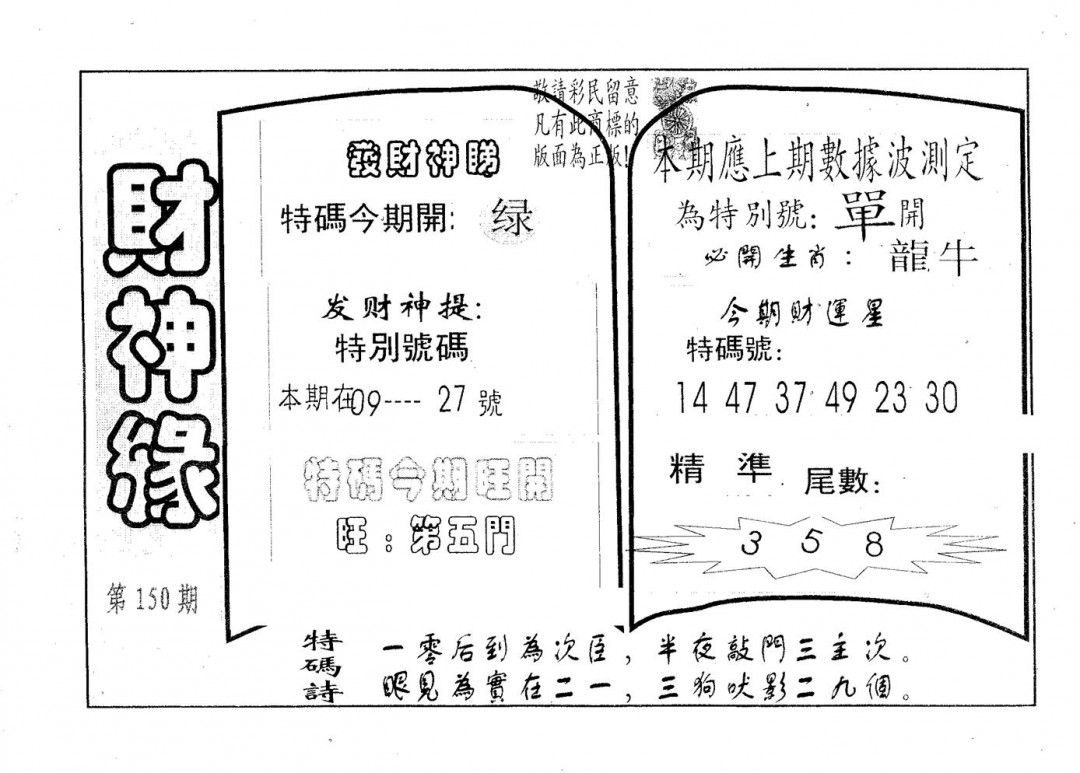 財神緣
第150期
敬請彩民留意
凡有此商標的
版面為正版!
發財神睇
特碼今期開: 绿
发财神提:
特別號碼
本期在09---- 27號
特碼今期旺開
旺：第五門
本期應上期數據波測定
為特別號: 單開
必開生肖: 龍牛
今期財運星
特碼號:
14 47 37 49 23 30
精準 尾數:
3 5 8
特碼詩
一零后到為次臣，半夜敲門三主次。
眼見為實在二一，三狗吠影二九個。